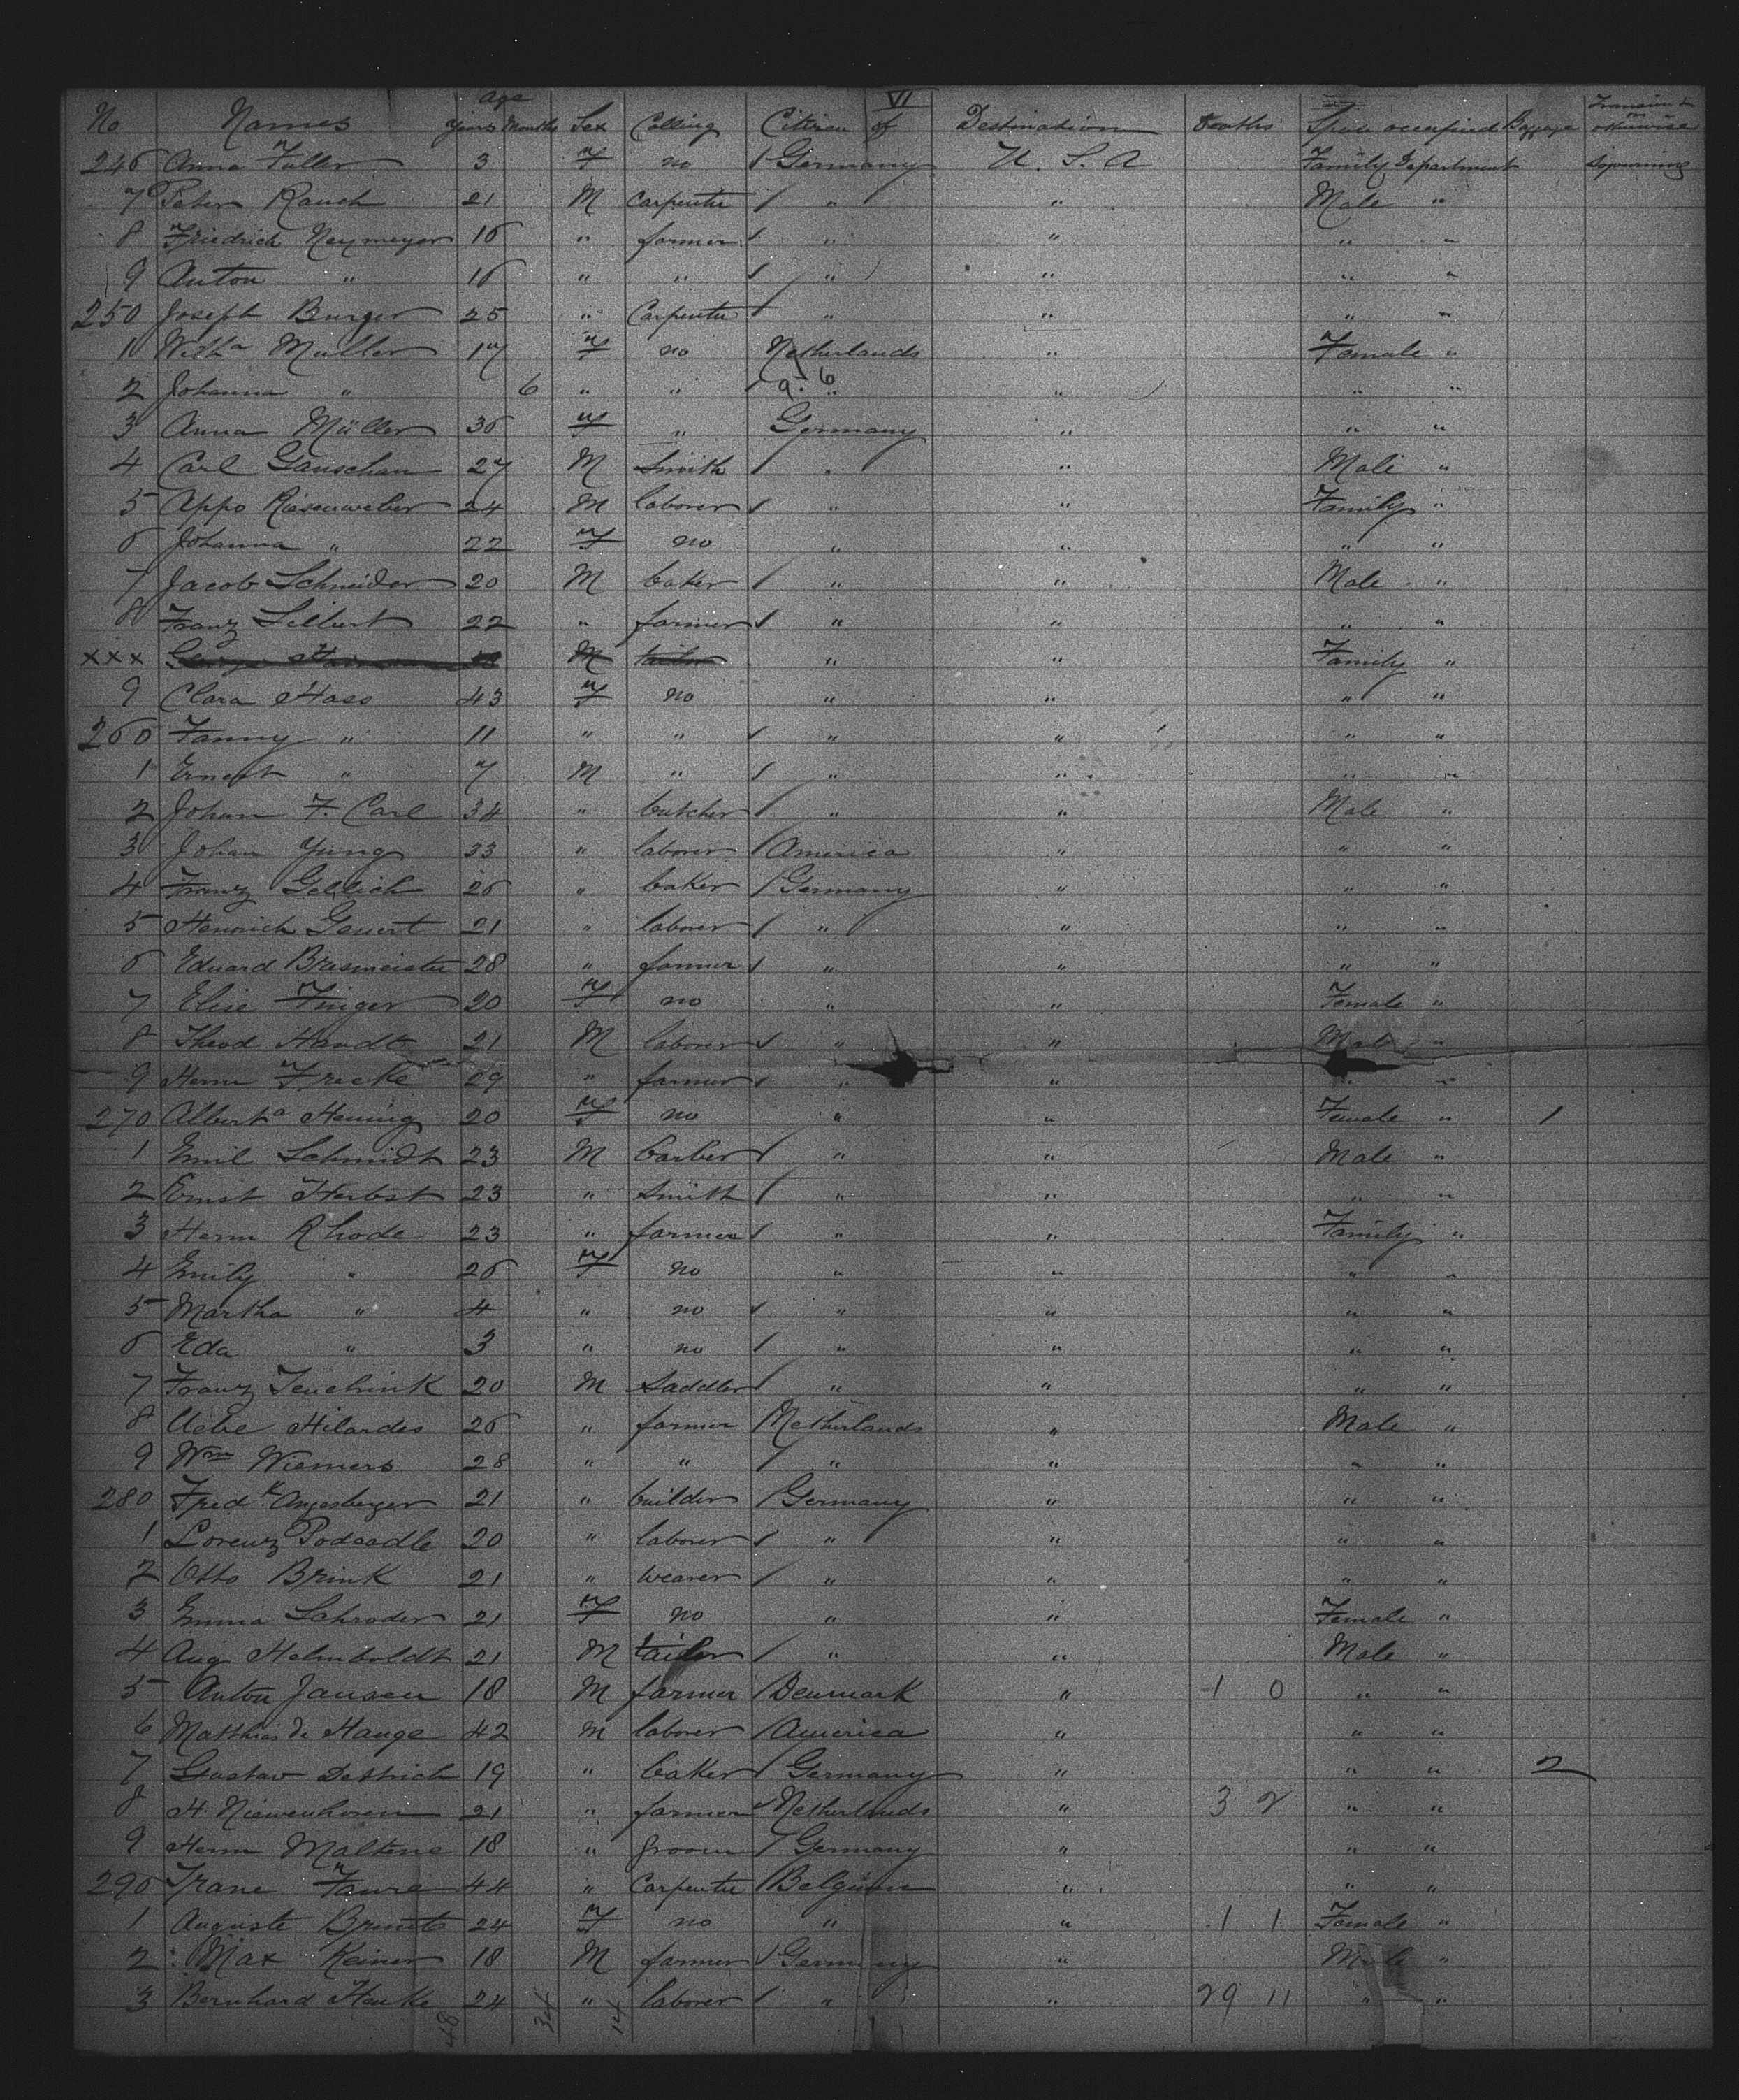 VI
No Names Age Years Months Sex Calling Citizen of Destination Deaths Space occupied Baggage Transient or otherwise
246 Anna Fuller 3 F no / Germany U. S. A Family Department Sojourning
7 Peter Rauch 21 M Carpenter / " " Male "
8 Friedrich Neymeyer 16 " farmer / " " " "
9 Anton " 16 " " / " " " "
250 Joseph Burger 25 " Carpenter / " " " "
1 Witha Müller 17 F no Netherlands " Female "
2 Johanna " 6 " " / " " " "
3 Anna Müller 36 F " Germany " " "
4 Carl Ganschau 27 M Smith / " " Male "
5 Appo Riesenweber 24 M laborer / " " Family "
6 Johanna " 22 F no " " " "
7 Jacob Schneider 20 M baker / " " Male "
8 Franz Silbert 22 " farmer / " " " "
xxx M tailor " " Family "
9 Clara Hass 43 F no " " " "
260 Fanny " 11 " " / " " " "
1 Ernest " 7 M " / " " " "
2 Johann F. Carl 34 " butcher / " " Male "
3 Johan Yung 33 " laborer / America " " "
4 Franz Gellich 26 " baker / Germany " " "
5 Heinrich Gevert 21 " laborer / " " " "
6 Eduard Bresmeister 28 " farmer / " " " "
7 Elise Finger 20 F no " " Female "
8 Theod Handt 21 M laborer / " " Male "
9 Herm Fricke 29 " farmer / " " " "
270 Alberta Hennig 20 F no " " Female " 1
1 Emil Schmidt 23 M barber / " " Male "
2 Ernst Herbst 23 " Smith / " " " "
3 Herm Rhode 23 " farmer / " " Family "
4 Emily " 26 F no " " " "
5 Martha " 4 " no / " " " "
6 Eda " 3 " no / " " " "
7 Franz Teuchink 20 M Saddler / " " " "
8 Uebe Hilardes 26 " farmer / Netherlands " Male "
9 Wm Wiemers 28 " " / " " " "
280 Fredk Angesberger 21 " builder / Germany " " "
1 Lorenz Podaadle 20 " laborer / " " " "
2 Otto Brink 21 " weaver / " " " "
3 Emma Schroder 21 F no " " Female "
4 Aug Helmboldt 21 M tailor / " " Male "
5 Anton Jansen 18 M farmer / Denmark " 1 0 " "
6 Matthias de Hauge 42 M laborer / America " " "
7 Gustav Dettrich 19 " baker / Germany " " " 2
8 H. Niewenhoven 21 " farmer Netherlands " 3 2 " "
9 Herm Maltene 18 " groom / Germany " " "
290 Franc Faure 44 " Carpenter / Belgium " " "
1 Auguste 24 F no " " 1 1 Female "
2 Max Reiner 18 M farmer / Germany " Male "
3 Bernhard Henke 24 " laborer / " " 29 11 " "
48 34 14